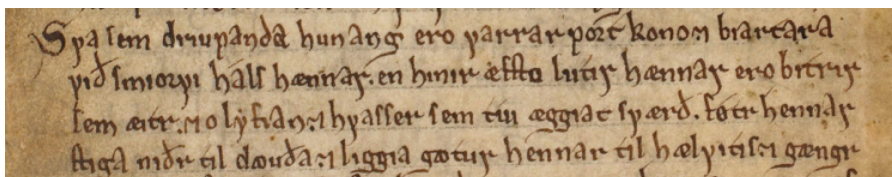 Sva sem driupanda hunang ero varrar port kono ⁊ biartara
við smiorvi hals hænnar. en hinir æfsto lutir hænnar ero bitrir
sem æitr. ⁊ olyfian. ⁊ hvasser sem tvi æggiat sværð. føtr hennar
stiga niðr til dꜹuða. ⁊ liggia gøtur hennar til hælvitis. ⁊ gængr